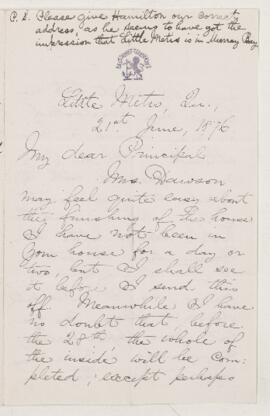 P.S. Please give Hamilton our correct
address, as he seems to have got the
impression that Little Metis is in Murray Bay
Little Metis, Qu.,
21st June, 1876
My dear Principal
Mrs. Dawson
may feel quite easy about
the finishing of the house
I have not been in
your house for a day or
two but I shall see
it before I send this
off. Meanwhile I have
no doubt that, before
the 28th, the whole of
the inside will be com-
pleted; except perhaps